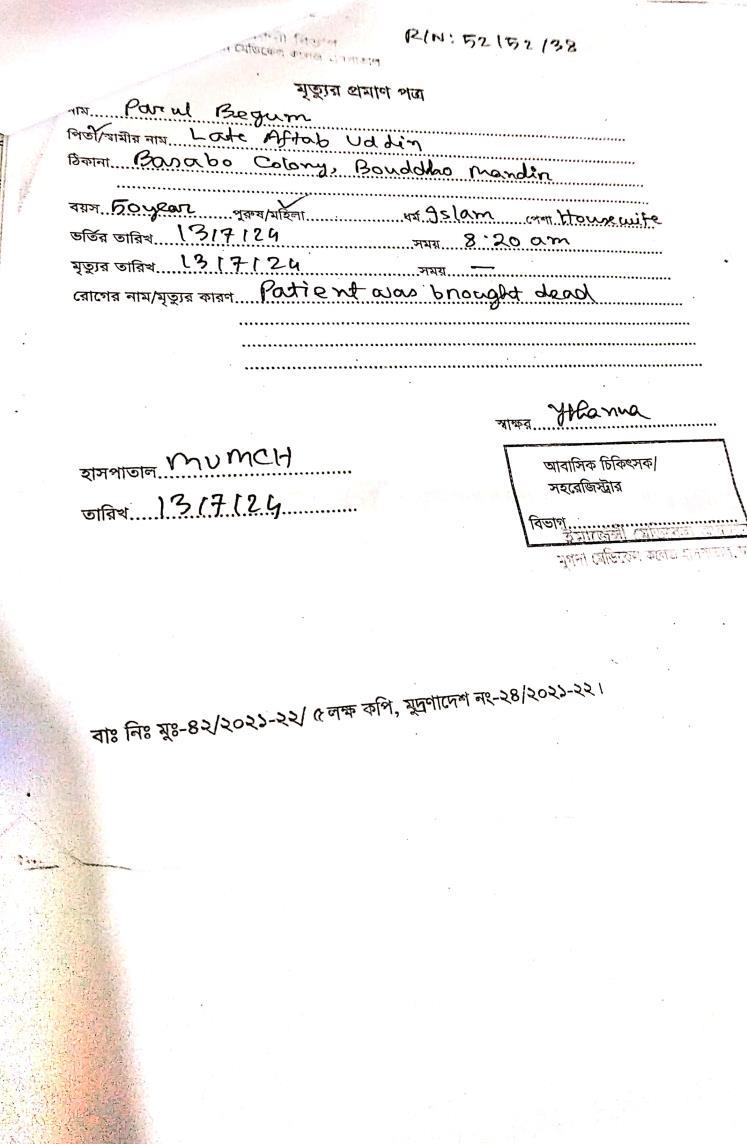 R/N: 52/52/38
মৃত্যুর প্রমাণ পত্র
নাম.... Parul Begum
পিতা/স্বামীর নাম.... Late Aftab Uddin
ঠিকানা.... Basabo Colony, Bouddho Mandir
বয়স.50 year.....পুরুষ/মহিলা..............ধর্ম.Islam......পেশা.Housewife
ভর্তির তারিখ...13/7/24......সময়.... 8:20 am
মৃত্যুর তারিখ...13/7/24......সময়.... —
রোগের নাম/মৃত্যুর কারণ... Patient was brought dead
স্বাক্ষর....
হাসপাতাল.. MUMCH
আবাসিক চিকিৎসক/
সহরেজিস্ট্রার
তারিখ.... 13/7/24
বিভাগ....
মুগদা মেডিকেল কলেজ হাসপাতাল,
বাঃ নিঃ মুঃ-৪২/২০২১-২২/ ৫ লক্ষ কপি, মুদ্রণাদেশ নং-২৪/২০২১-২২।